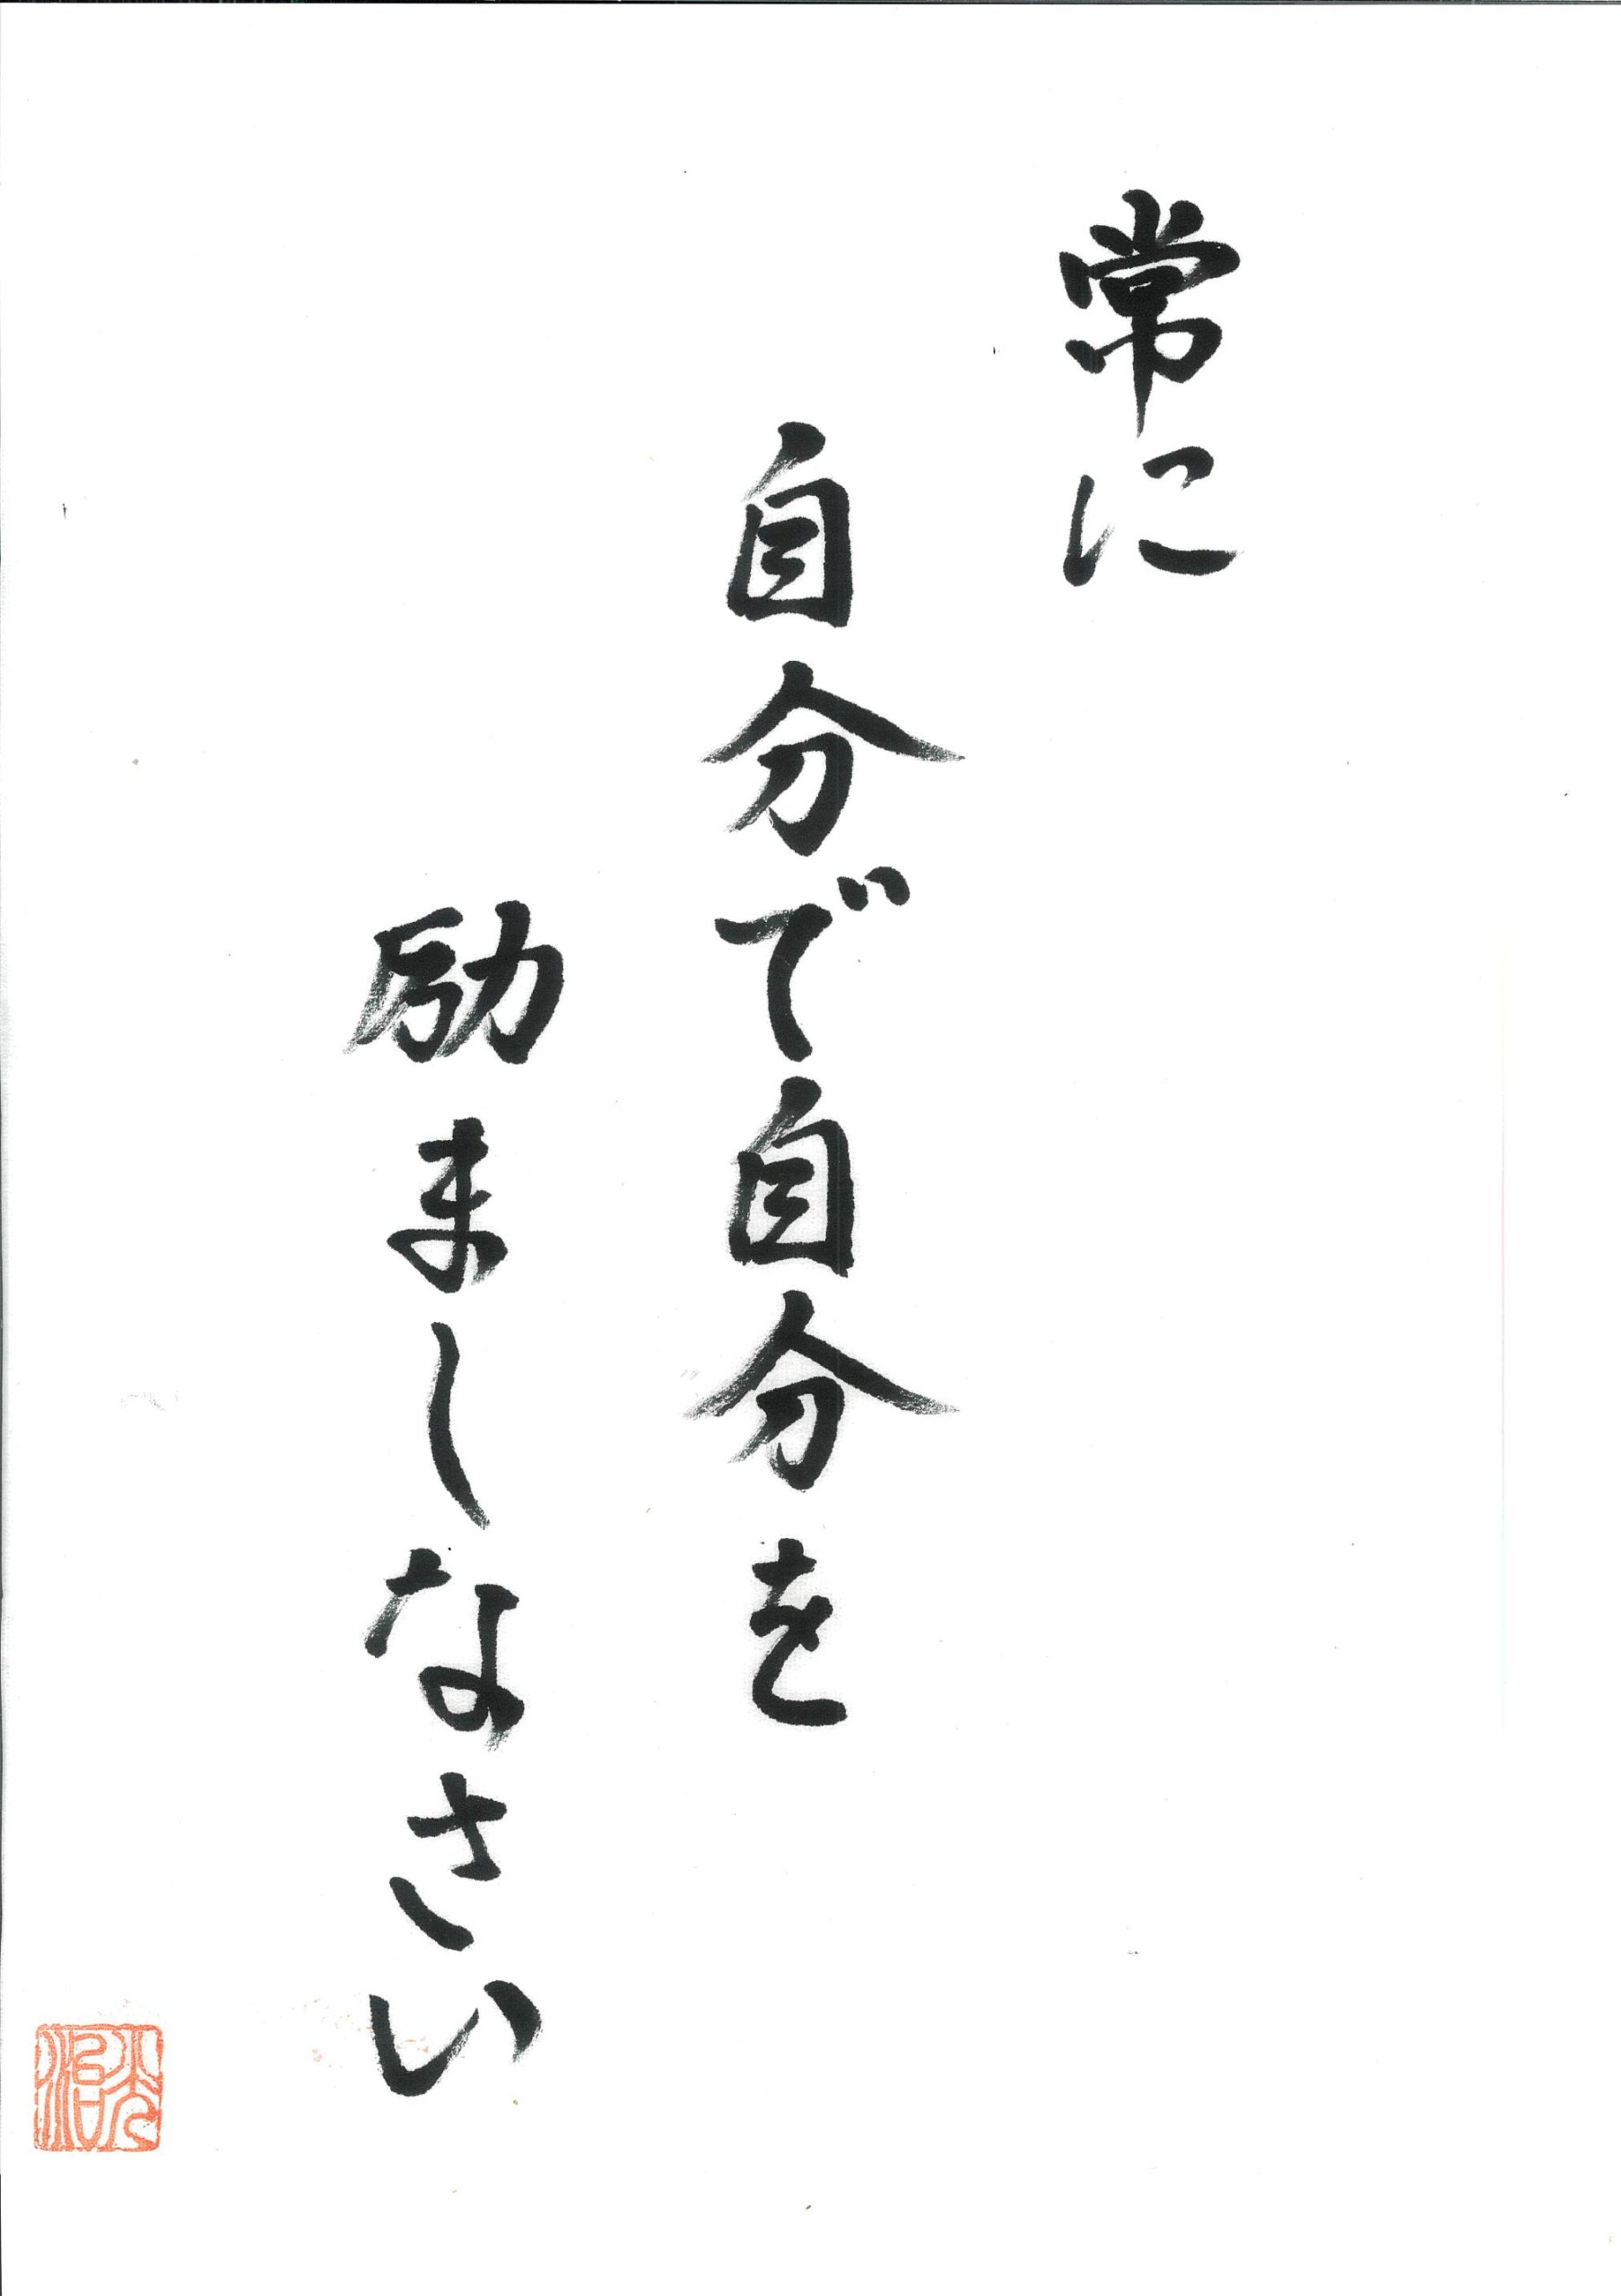 常に
自分で自分を
励ましなさい